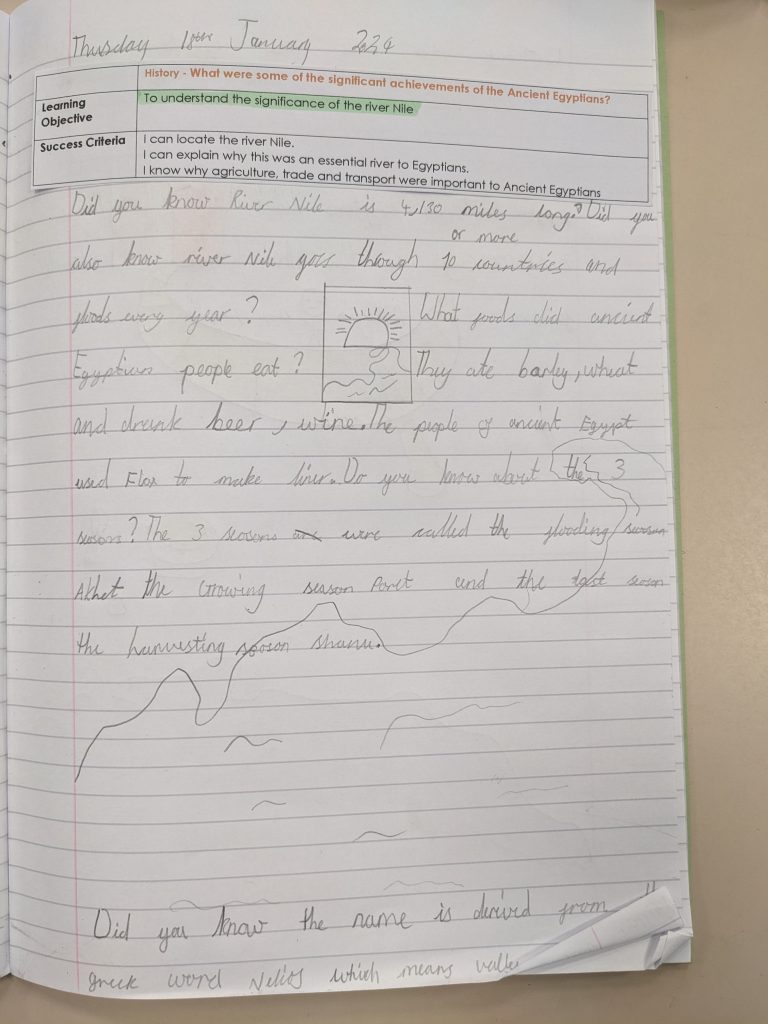 Thusday 18th January 2024
History - What were some of the significant achievements of the Ancient Egyptians?
Learning Objective
To understand the significance of the river Nile
Success Criteria
I can locate the river Nile.
I can explain why this was an essential river to Egyptians.
I know why agriculture, trade and transport were important to Ancient Egyptians
Did you know River Nile is 4,130 miles long? Did you
or more
also know river Nile goes through 10 countries and
floods every year? What foods did ancient
Egyptian people eat? They ate barley, wheat
and drank beer, wine. The people of ancient Egypt
used Flax to make linen. Do you know about the 3
seasons? The 3 seasons were called the flooding season
Akhet the Growing season Poret and the last seson
the harvesting season shanu.
Did you know the name is derived from
greek word Nelios which means